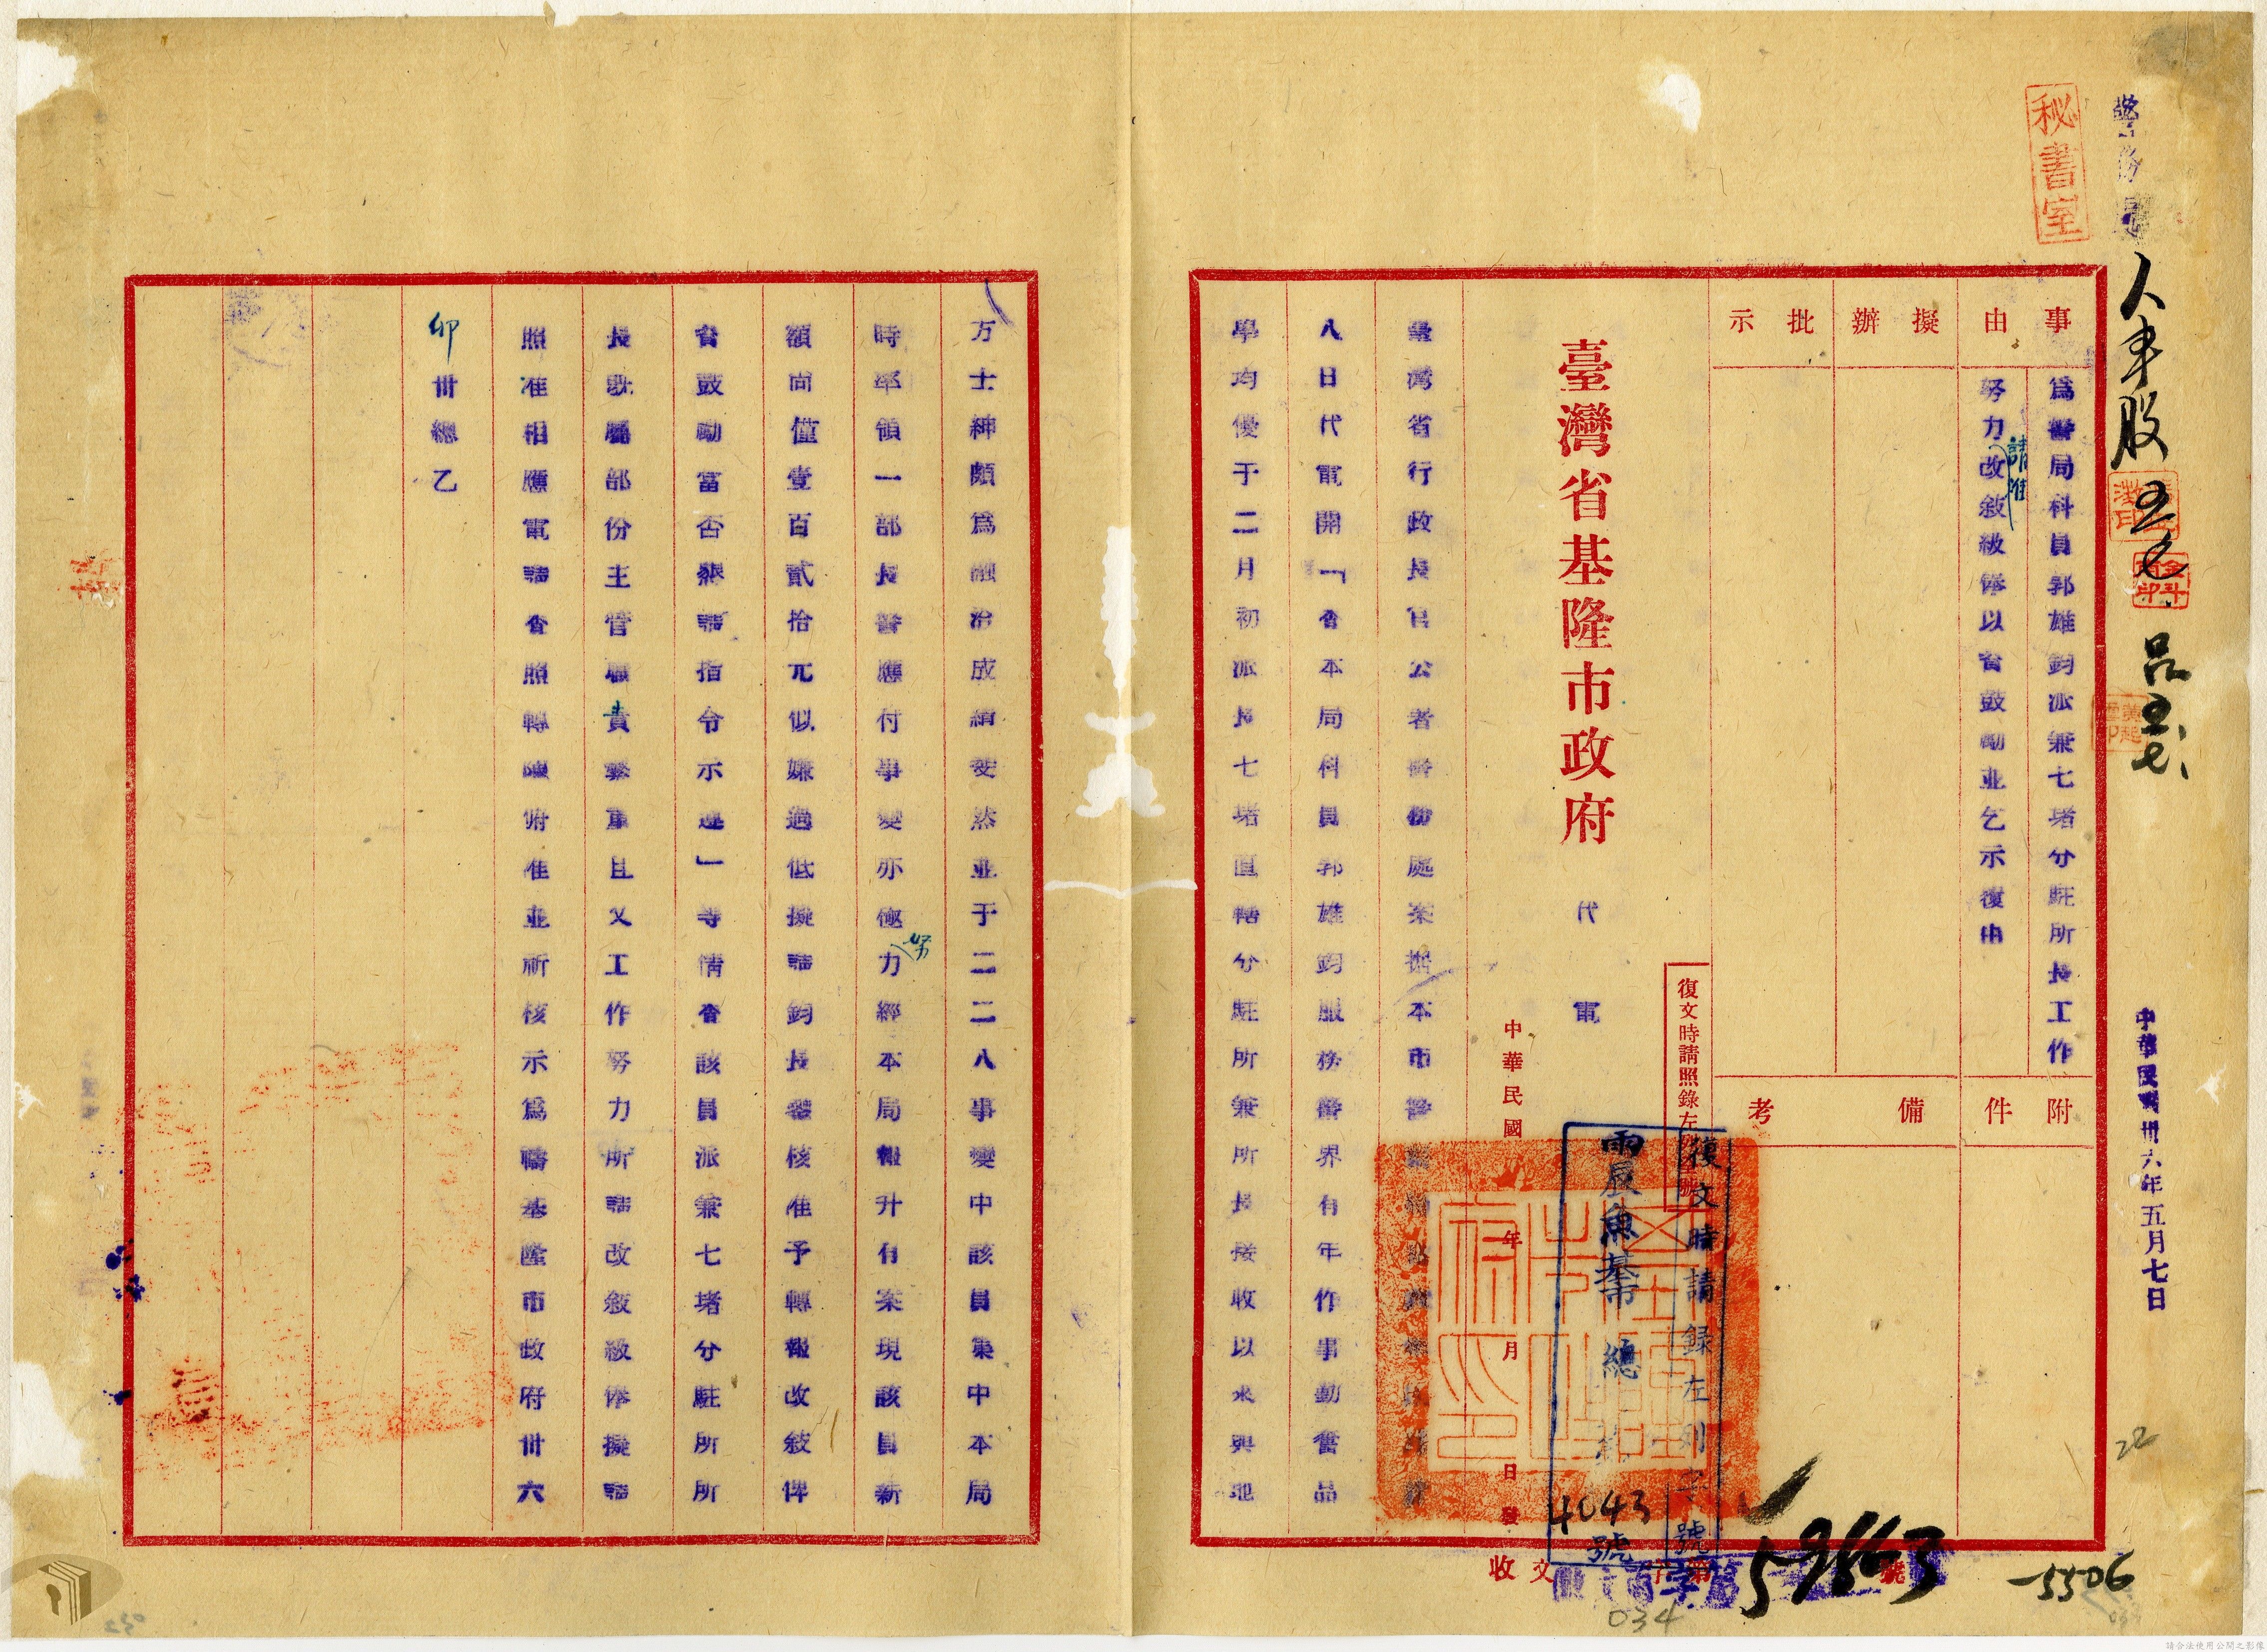 秘書室
人事股
五七
呂
五七
中華民國卅六年五月七日
事由
擬辦
批示
爲警局科員郭雄鈞派兼七堵分駐所長工作
努力請准改敘級俸以資鼓勵並乞示復由
附件
備考
臺灣省基隆市政府
代電
復文時請照錄左
復文時請録左列字號
基市總
4043號
中華民國 年 月 日發
臺灣省行政長官公署警務處案據本市警
八日代電開「查本局科員郭雄鈞服務警界有年作事勤奮品
學均優于二月初派長七堵直轄分駐所兼所長接收以來與地
方士紳頗爲融洽成績斐然並于二二八事變中該員集中本局
時率領一部長警應付事變亦極努力經本局報升有案現該員新
額尚僅壹百貳拾元似嫌過低擬請鈞長鑒核准予轉報改敘俾
資鼓勵當否懇請指令示遵」等情查該員派兼七堵分駐所所
長既屬部份主管職責綦重且又工作努力所請改敘級俸擬請
照准相應電請查照轉陳俯准並祈核示爲禱基隆市政府卅六
卯卅總乙
收文 字第 號
59863
5506
22
034
請合法使用公開之影像